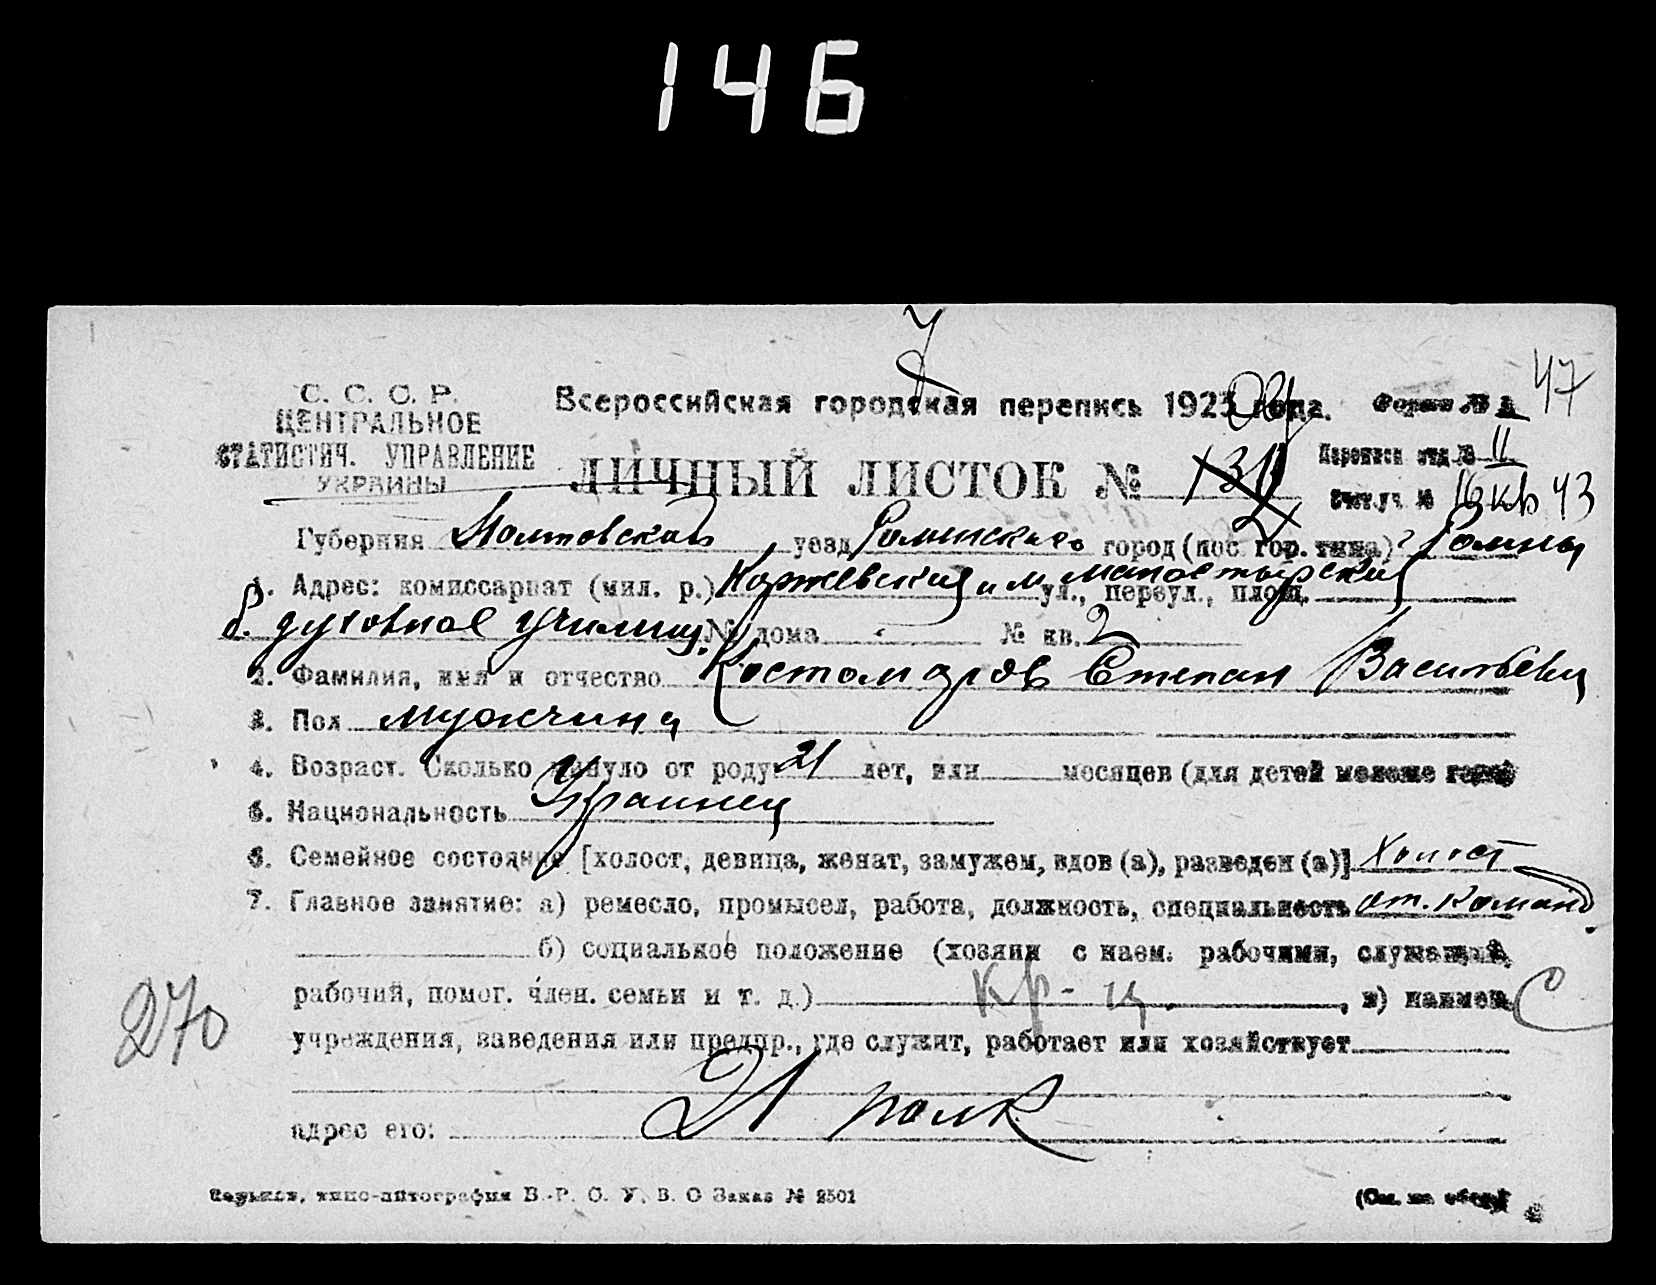 146
С. С. С. Р.
ЦЕНТРАЛЬНОЕ
СТАТИСТИЧ. УПРАВЛЕНИЕ
УКРАИНЫ
Всероссийская городская перепись 1923 года.
Форма № 2 47
ЛИЧНЫЙ ЛИСТОК №
Переписн отд № 11
Счет.уч №
43
Губерния Полтовская уезд Роменского город (пос гор. типа)? Ромны
1. Адрес: комиссариат (мил. р.) Коржевская и м монастырская ул., переул., площ.
б. духовное училищ. № дома № кв. 2
2. Фамилия, имя и отчество Костомаров Степан Васильевич
3. Пол мужчина
4. Возраст. Сколько минуло от роду 21 лет, или месяцев (для детей моложе года)
5. Национальность Украинец
6. Семейное состояние [холост, девица, женат, замужем, вдов (а), разведен (а)] холост
7. Главное занятие: а) ремесло, промысел, работа, должность, специальность от. команд.
б) социальное положение (хозяин с наем. рабочими, служащий,
рабочий, помог. член. семьи и т. д.) кр-ц, в) наимен.
270
учреждения, заведения или предпр., где служит, работает или хозяйствует
адрес его: 21 полк
Харьков, типо-литография В.-Р. О. У. В. О Заказ № 2501
(См. на обор.)